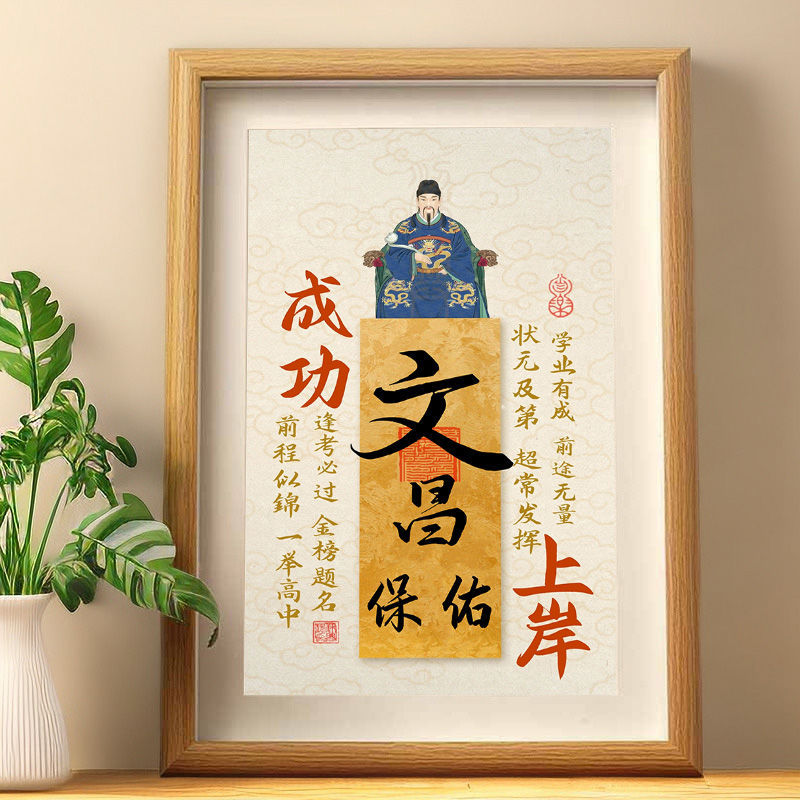 成功
上岸
文昌
保佑
学业有成 前途无量
状元及第 超常发挥
逢考必过 金榜题名
前程似錦 一举高中